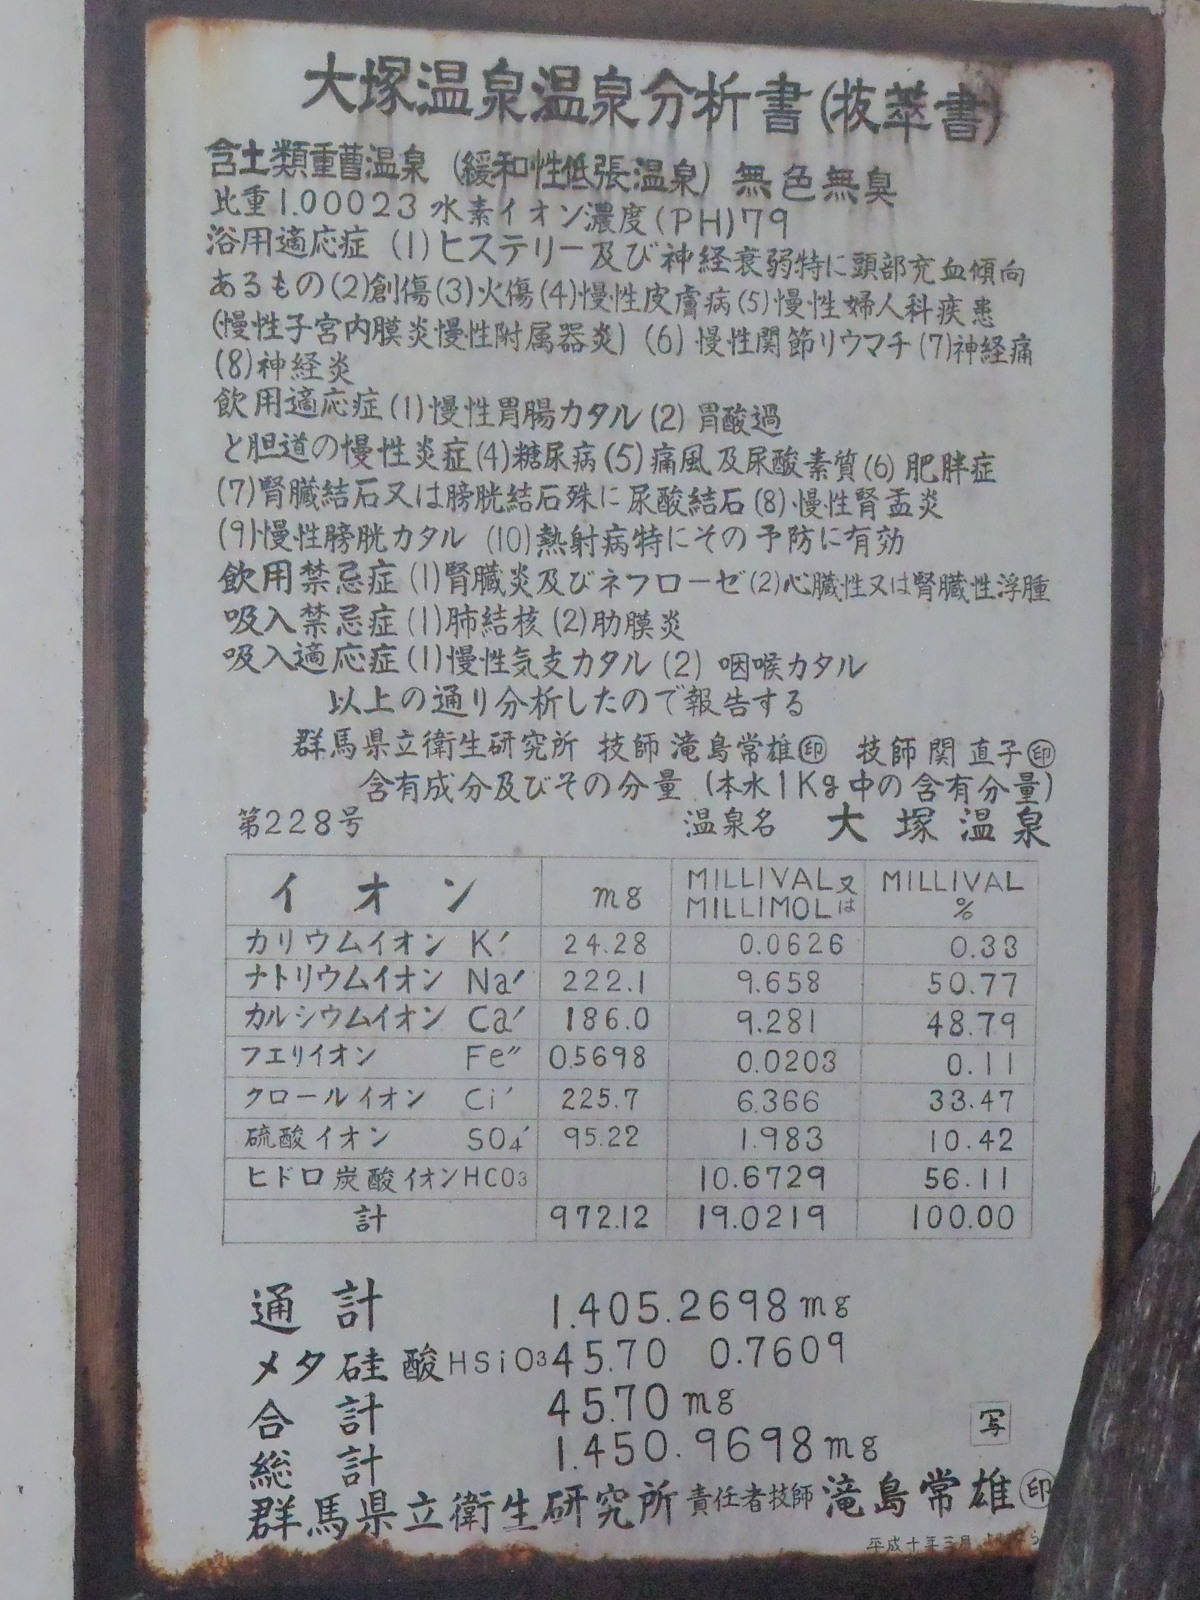 大塚温泉温泉分析書(抜萃書)
含土類重曹温泉 (緩和性低張温泉) 無色無臭
比重1.00023 水素イオン濃度(PH)79
浴用適応症 (1)ヒステリー及び神経衰弱特に頭部充血傾向
あるもの(2)創傷(3)火傷(4)慢性皮膚病(5)慢性婦人科疾患
(慢性子宮内膜炎慢性附属器炎) (6) 慢性関節リウマチ(7)神経痛
(8)神経炎
飲用適応症(1)慢性胃腸カタル(2) 胃酸過
と胆道の慢性炎症(4)糖尿病(5)痛風及尿酸素質(6) 肥胖症
(7)腎臓結石又は膀胱結石殊に尿酸結石(8)慢性腎盂炎
(9)慢性膀胱カタル (10)熱射病特にその予防に有効
飲用禁忌症 (1)腎臓炎及びネフローゼ(2)心臓性又は腎臓性浮腫
吸入禁忌症(1)肺結核(2)肋膜炎
吸入適応症(1)慢性気支カタル(2) 咽喉カタル
以上の通り分析したので報告する
群馬県立衛生研究所 技師 滝島常雄㊞ 技師 関 直子㊞
含有成分及びその分量 (本水1Kg中の含有分量)
第228号 温泉名 大塚温泉
イオン mg MILLIVAL又はMILLIMOL MILLIVAL %
カリウムイオン K′ 24.28 0.0626 0.33
ナトリウムイオン Na′ 222.1 9.658 50.77
カルシウムイオン Ca′ 186.0 9.281 48.79
フエリイオン Fe″ 0.5698 0.0203 0.11
クロールイオン Ci′ 225.7 6.366 33.47
硫酸イオン SO4′ 95.22 1.983 10.42
ヒドロ炭酸イオンHCO3 10.6729 56.11
計 972.12 19.0219 100.00
通計 1.405.2698mg
メタ硅酸HSiO3 45.70 0.7609
合計 45.70mg
写
総計 1.450.9698mg
群馬県立衛生研究所 責任者技師 滝島常雄㊞
平成十年三月